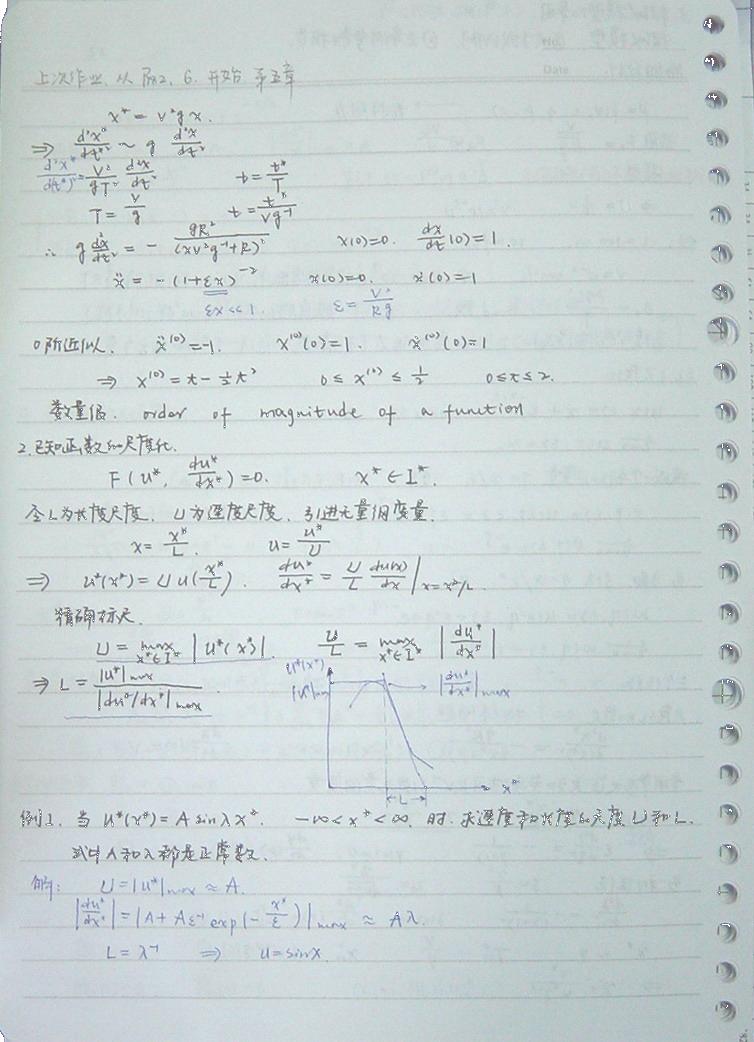 上次作业, 从 P82, 6. 开始 第五章
x* = v²g⁻¹x.
⇒ d²x*/dt*² ~ g d²x/dt²
d²x*/d(t*)² = V²/gT² d²x/dt² t = t*/T
T = V/g t = t*/Vg⁻¹
∴ g d²x/dt² = - gR²/(xv²g⁻¹+R)² x(0)=0. dx/dt(0)=1.
ẍ = -(1+εx)⁻² x(0)=0. ẋ(0)=1
εx<<1. ε = V²/Rg
0阶近似. ẍ⁽⁰⁾=-1. x⁽⁰⁾(0)=1 ẋ⁽⁰⁾(0)=1
⇒ x⁽⁰⁾ = t - ½t² 0 ≤ x⁽⁰⁾ ≤ 1/2 0≤t≤2.
数量级. order of magnitude of a function
2. 已知函数的尺度化.
F(u*, du*/dx*)=0. x* ∈ I*.
令L为长度尺度, U为速度尺度, 引进无量纲变量.
x = x*/L. u = u*/U
⇒ u*(x*) = U u(x*/L). du*/dx* = U/L du(x)/dx |x=x*/L.
精确标尺.
U = max x*∈I* |u*(x*)|. U/L = max x*∈I* |du*/dx*|
⇒ L = |u*|max / |du*/dx*|max
u*(x*)
|u*|max
|du*/dx*|max
L
x*
例1. 当 u*(x*) = A sin λx*. -∞ < x* < ∞. 时. 求速度和长度的尺度 U 和 L.
式中 A 和 λ 都是正常数.
解: U = |u*|max ≈ A.
|du*/dx*| = |A + Aε⁻¹ exp(- x*/ε)|max ≈ Aλ.
L = λ⁻¹ ⇒ u = sinx.